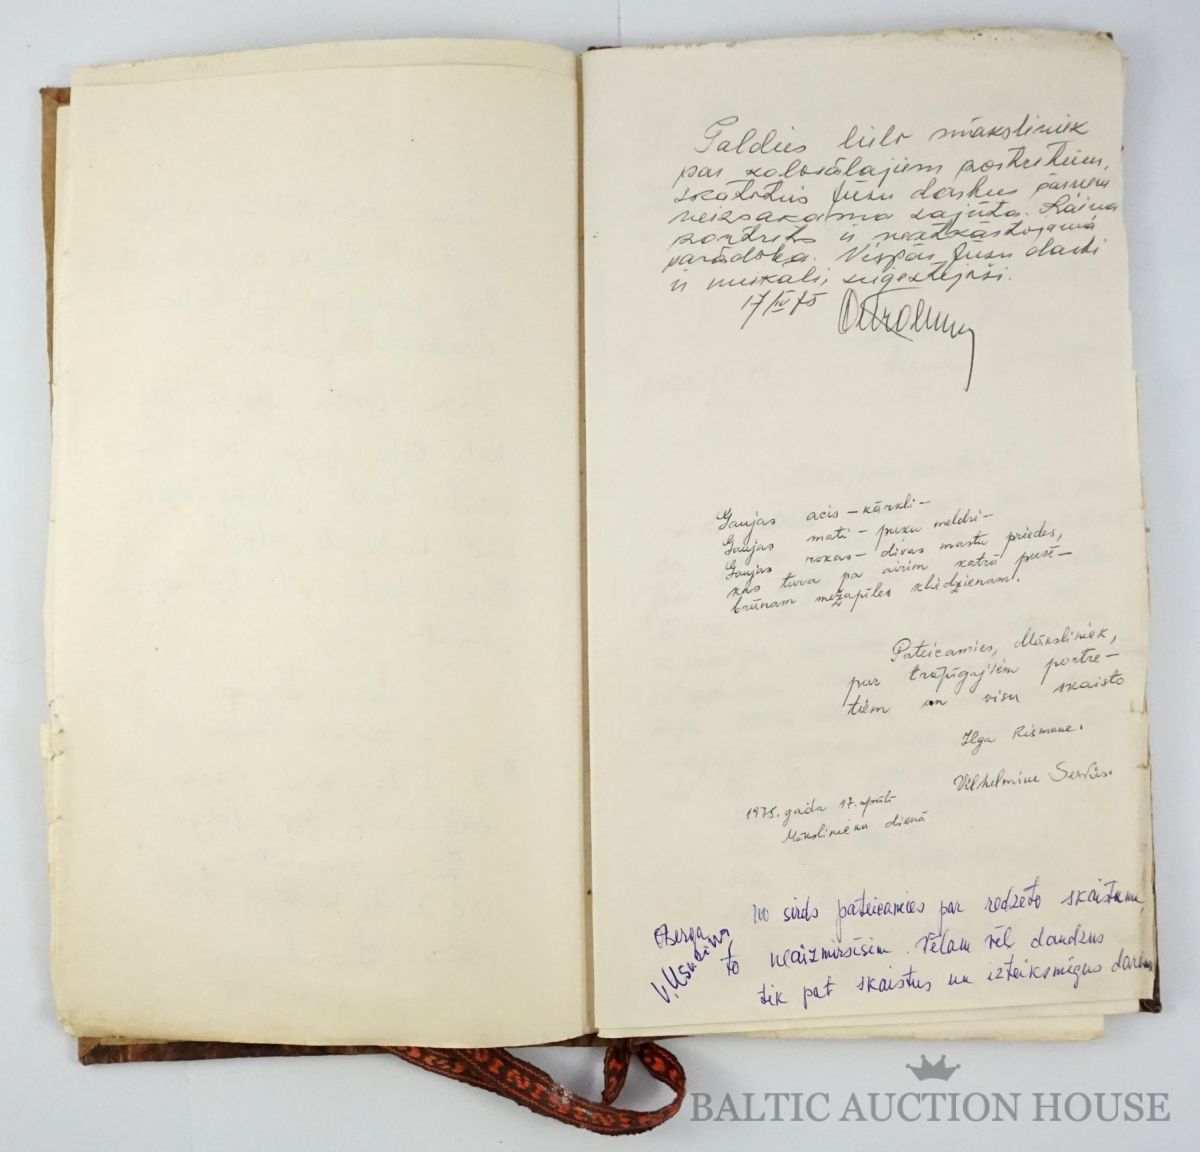 Paldies lielo māksliniek
par kolosālajiem portretiem,
skatoties Jūsu darbus pārņem
neizsakāma sajūta. Raiņa
portrets ir neatkāstojama
parādība. Vispār Jūsu darbi
ir muzikāli, suģestējoši.
17/IV 75
Gaujas acis – kārkli –
Gaujas mati – puru meldri –
Gaujas rokas – divas mastu priedes,
kas tura pa airim katrā pusē –
brūnam mežapīles klidzienam.
Pateicamies, Māksliniek,
par trāpīgajiem portre-
tiem un visu skaisto
Ilga Rismane.
Vilhelmīne
1975. gada 17. aprīlī
Mākslinieku dienā
No sirds pateicamies par redzēto skaistumu,
to neaizmirsīsim. Vēlam vēl daudzus
tik pat skaistus un izteiksmīgus darbus
BALTIC AUCTION HOUSE